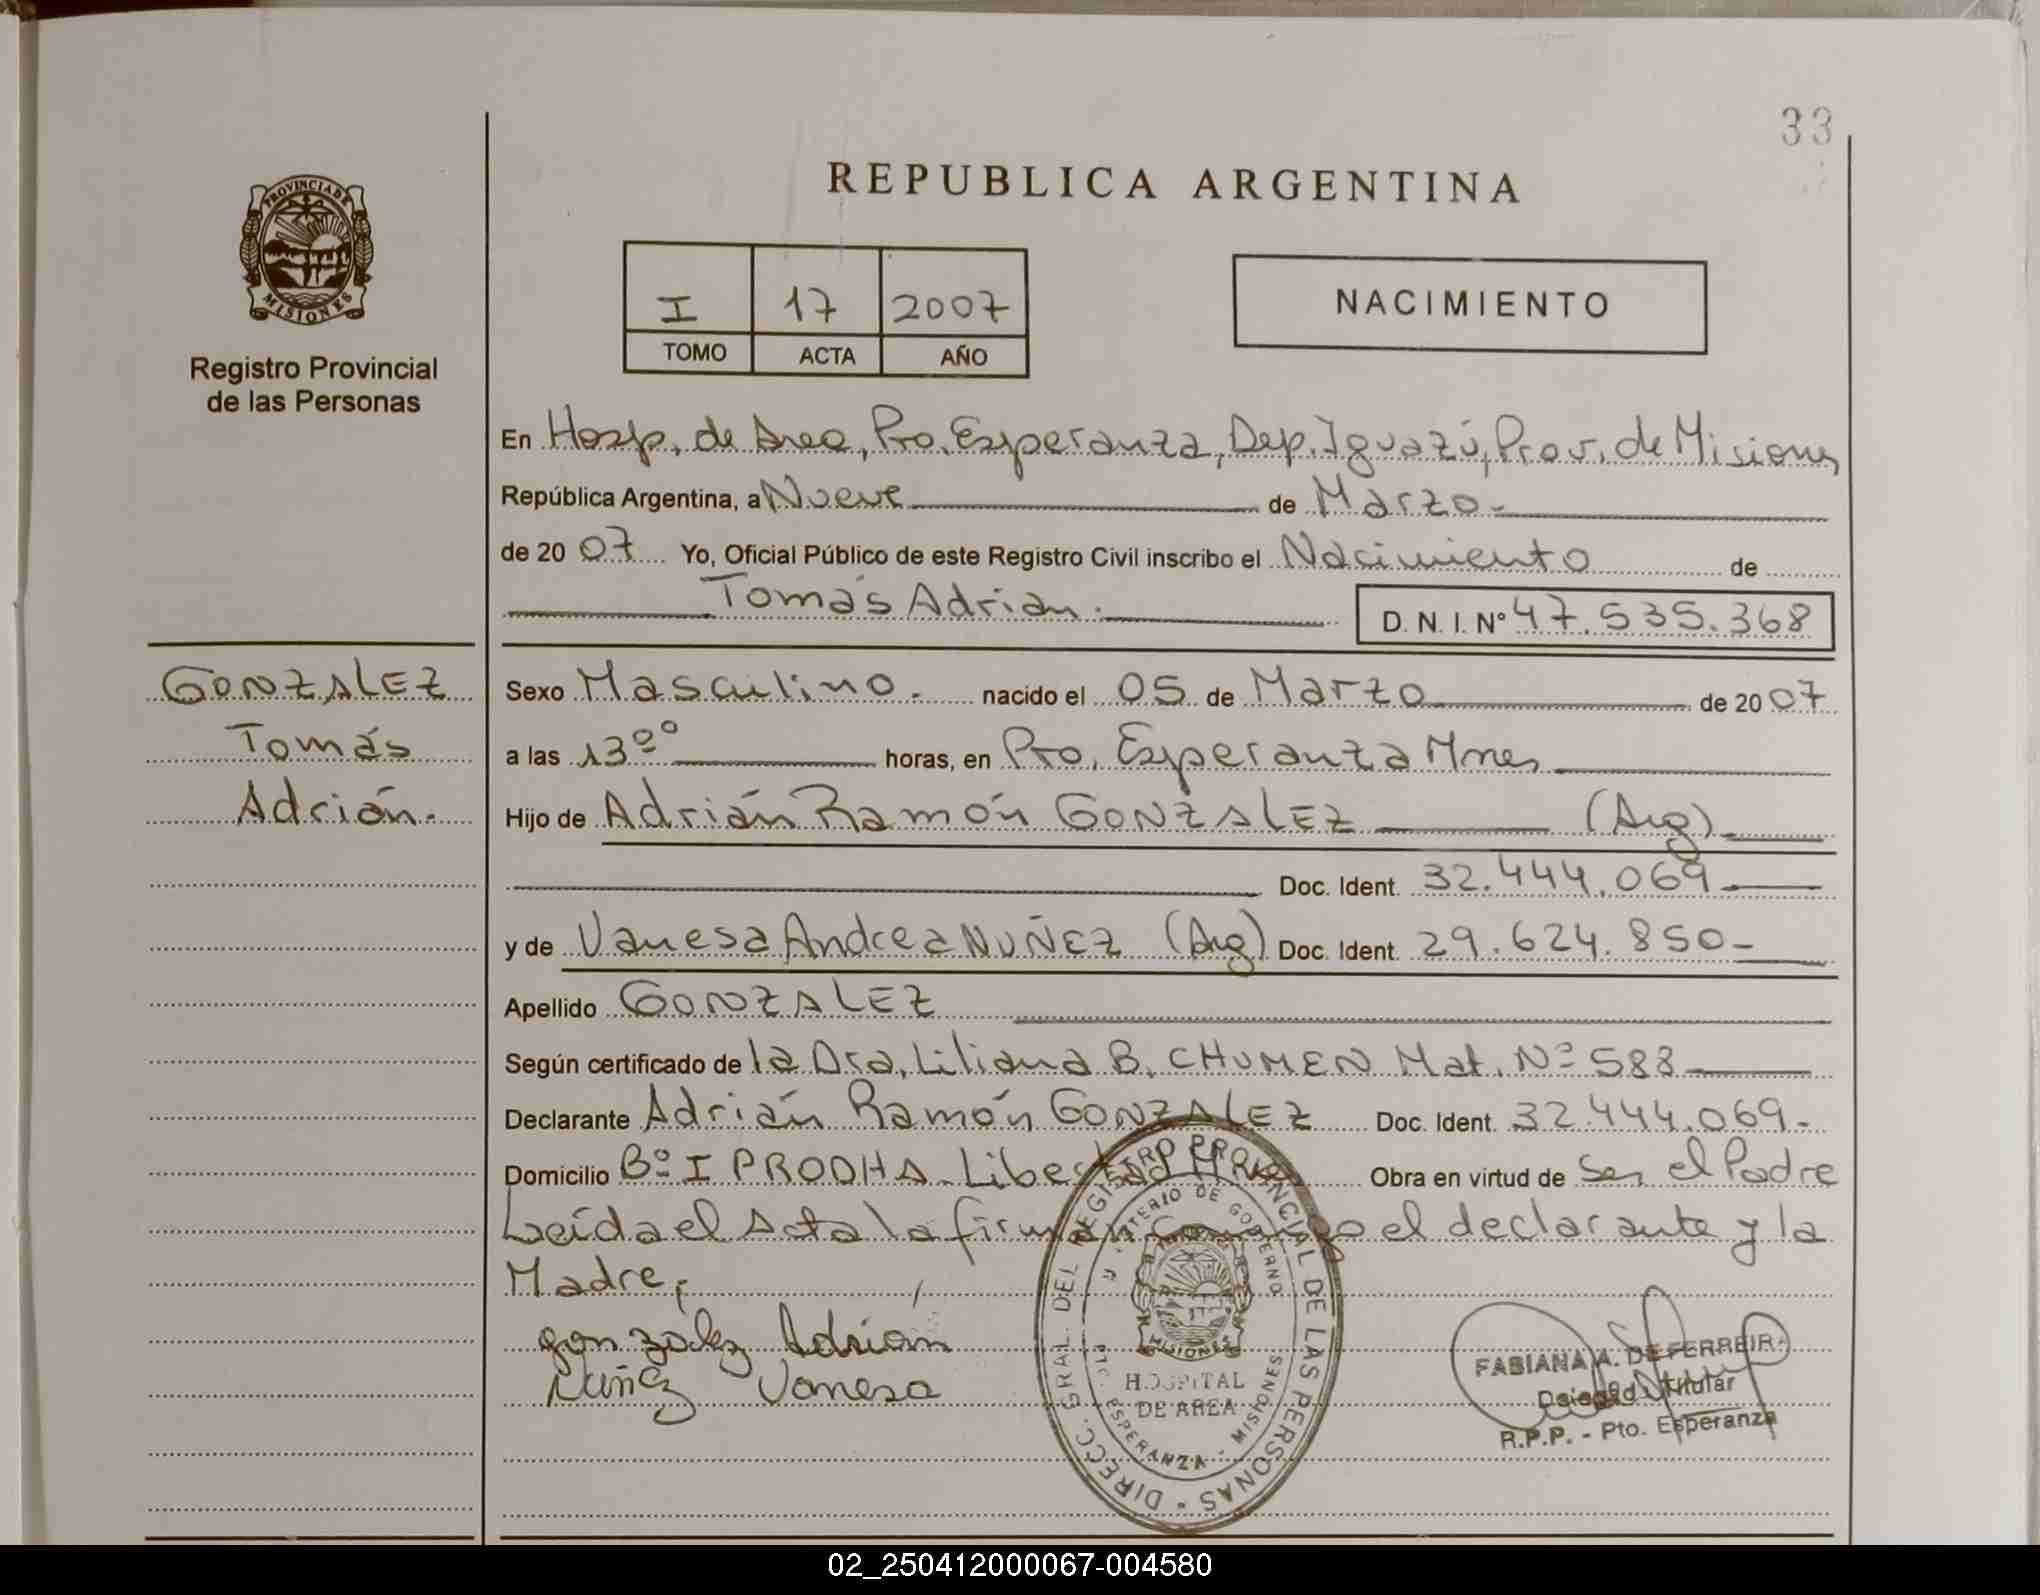 33
REPUBLICA ARGENTINA
PROVINCIA DE
MISIONES
Registro Provincial
de las Personas
I 17 2007
TOMO ACTA AÑO
NACIMIENTO
En Hosp. de Area, Pto. Esperanza, Dep. Iguazú, Prov. de Misiones
República Argentina, a Nueve de Marzo.-
de 20 07 Yo, Oficial Público de este Registro Civil inscribo el Nacimiento de
Tomás Adrián.
D. N. I. Nº 47.535.368
GONZALEZ
Tomás
Adrián.
Sexo Masculino. nacido el 05 de Marzo de 20 07
a las 13ºº horas, en Pto. Esperanza Mnes
Hijo de Adrián Ramón GONZALEZ (Arg)
Doc. Ident. 32.444.069
y de Vanesa Andrea NUÑEZ (Arg) Doc. Ident. 29.624.850-
Apellido GONZALEZ
Según certificado de la Dra. Liliana B. CHUMEN Mat. Nº 588
Declarante Adrián Ramón GONZALEZ Doc. Ident. 32.444.069-
Domicilio Bº I PRODHA. Libertad Obra en virtud de Ser el Padre
Leída el Acta la firman conmigo el declarante y la
Madre.
gonzález Adrián
Núñez Vanesa
DIRECC. GRAL. DEL REGISTRO PROVINCIAL DE LAS PERSONAS
MINISTERIO DE GOBERNO
MISIONES
HOSPITAL
DE AREA
PTO. ESPERANZA - MISIONES
FABIANA A. DE FERREIR
Delegada Titular
R.P.P. - Pto. Esperanza
02_250412000067-004580